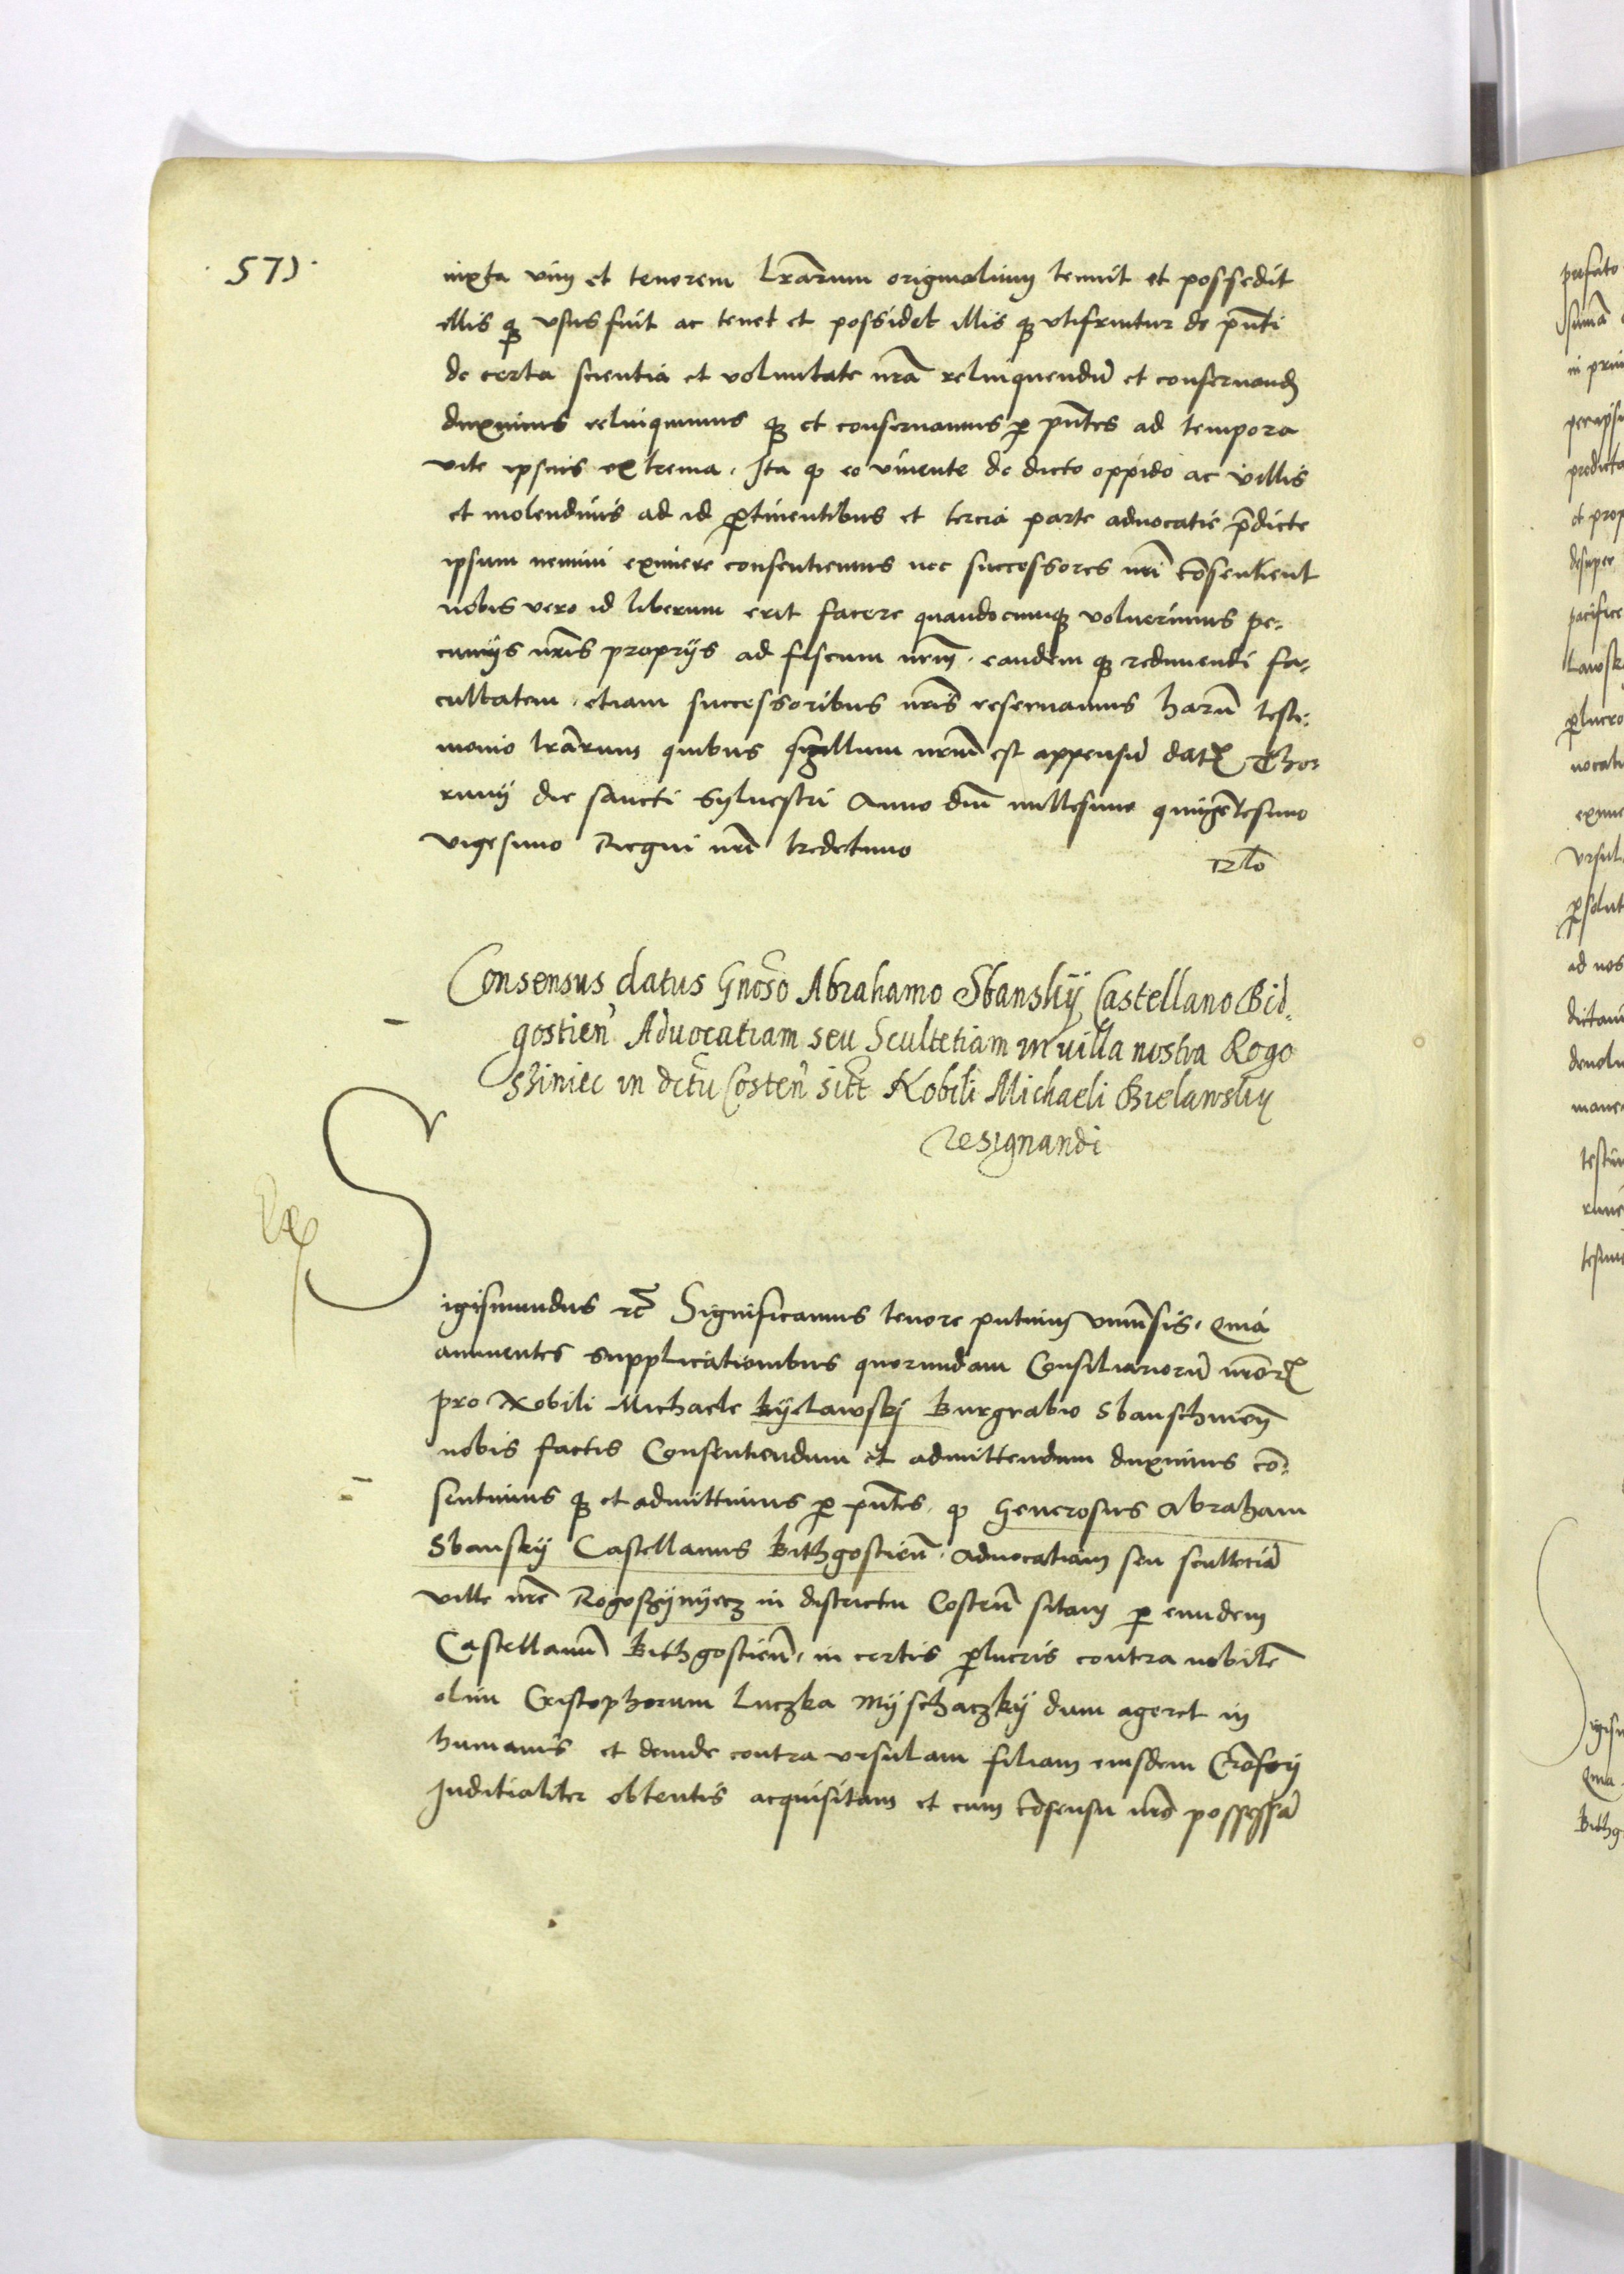 571
iuxta vim et tenorem lrarum originalium tenuit et possedit
illis q3 vsus fuit ac tenet et possidet illis q3 vtifruitur de pnti
de certa scientia et voluntate nra relinquendu et conseruand
duximus relinquimus q3 et conseruamus p pntes ad tempora
vite ipsius extrema. Ita q eo viuente de dicto oppido ac villis
et molendinis ad id ptinentibus et tercia parte aduocatie pdicte
ipsum nemini eximere consentiemus nec successores nri cosentient
nobis vero id liberum erit facere quandocunq3 voluerimus pe-
cunijs nris proprijs ad fiscum nrm. eandem q3 redimendi fa-
cultatem. etiam successoribus nris reseruamus haru testi-
monio lrarum quibus sigillum nrum est appensu dat Tho-
runij die sancti Syluestri Anno dni millesimo quigetesimo
vigesimo Regni nri tredecimo
Rlo
Consensus datus Gnoso Abrahamo Sbanskij Castellano Bid,
gostien Aduocatiam seu Scultetiam in villa nostra Rogo
shiniec in dctu Costen sitt Nobili Michaeli Bielawskij
resignandi
Sigismundus rc Significamus tenore pntium vniusis. Quia
annuentes supplicationibus quorundam Consiliarioru nror
pro Nobili Michaele byelawskj Burgrabio Sbanschinen
nobis factis Consentiendum et admittendum duximus co-
sentimus q3 et admittimus p pntes. q Generosus Abraham
Sbansky Castellanus Bithgostien. aduocatiam seu scultecia
ville nre Rogoszynyecz in districtu Costen sitam p eundem
Castellanu Bithgostien. in certis plucris contra nobile
olim Cristophorum Luczka Myschaczky dum ageret in
humanis et deinde contra vrsulam filiam eiusdem
Juditialiter obtentis acquisitam et cum cosensu nro possessa